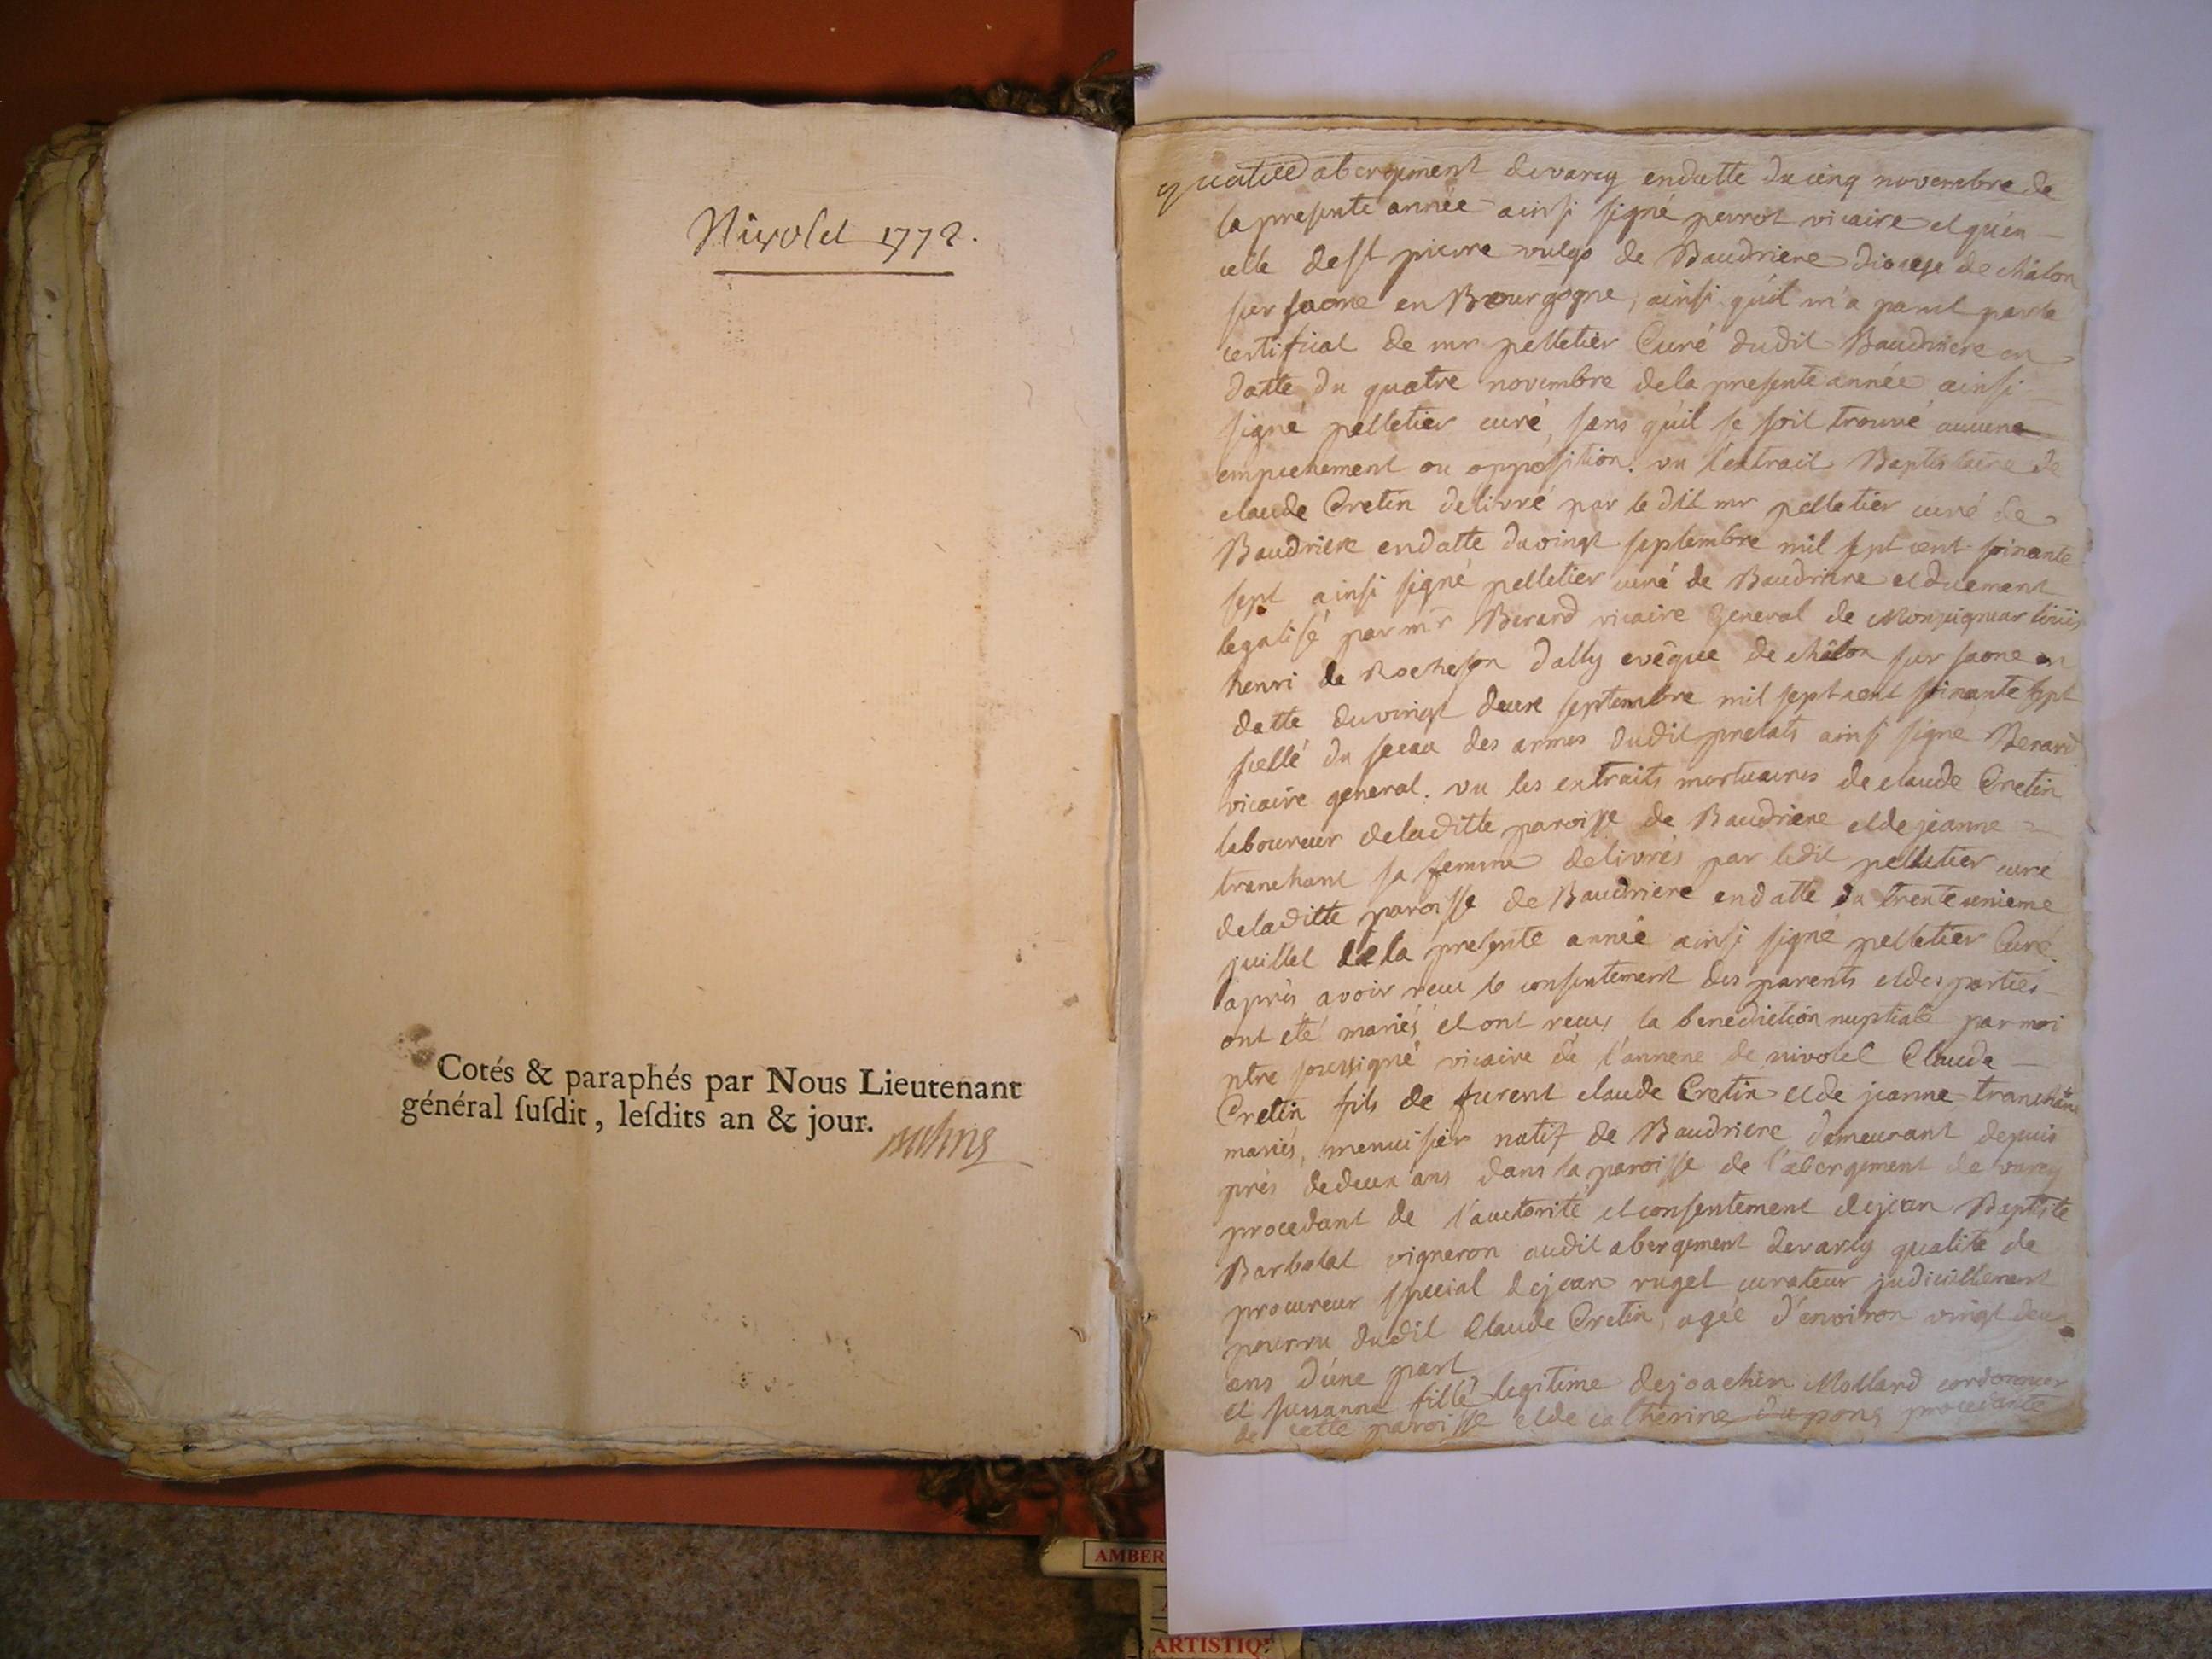 Nivolet 1772.
Cotés & paraphés par Nous Lieutenant
général ſuſdit, leſdits an & jour.
abergement de varey endatte du cinq novembre de
la presente année ainsi signé perrot vicaire et qu'en
celle de st pierre vulgo de Baudriere diocese de châlon
sur saone en Bourgogne, ainsi qu'il m'a parut par le
certificat de mr pelletier Curé dudit Baudriere en
datte du quatre novembre de la presente année ainsi
signé pelletier curé, sans qu'il se soit trouvé aucune
empechement ou opposition. vu l'extrait Baptistaire de
claude Cretin delivré par le dit mr pelletier curé de
Baudriere endatte du vingt septembre mil sept cent soixante
sept ainsi signé pelletier curé de Baudriere et duement
legalisé par mr Berard vicaire general de Monseigneur louis
henri de Rochefon dally evêque de châlon sur saone en
datte du vingt deux septembre mil sept cent soixante sept
scellé du sceau des armes dudit prelats ainsi signé Berard
vicaire general. vu les extraits mortuaires de claude Cretin
laboureur deladitte paroisse de Baudriere et de jeanne
tranchant sa femme delivrés par ledit pelletier curé
deladitte paroisse de Baudriere endatte du trente unieme
juillet de la presente année ainsi signé pelletier Curé.
après avoir reçu le consentement des parents et des parties
ont été mariés et ont reçus la benediction nuptiale par moi
ptre soussigné vicaire de l'annexe de nivolet Claude
Cretin fils de furent claude Cretin et de jeanne tranchant
mariés, menuisier natif de Baudriere demeurant depuis
près de deux ans dans la paroisse de l'abergement de varey
procedant de l'auctorité et consentement de jean Baptiste
Barbolat vigneron audit abergement de varey qualite de
procureur special de jean rugel curateur judiciellement
pourvu dudit Claude Cretin, agée d'environ vingt deux
ans d'une part
et sussanne fille legitime de joachin Mollard cordonnier
de cette paroisse et de catherine dupons procedante